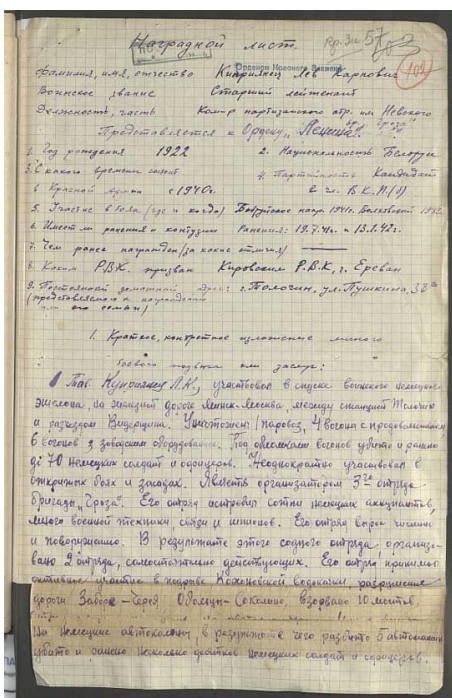 Наградной лист.
Орденом Красного Знамени
Фамилия, имя, отчество Киприянец Лев Карпович
Воинское звание Старший лейтенант
Должность, часть Комир партизанского отр. им Невского
Представляется к Ордену „Ленина"
1. Год рождения 1922 2. Национальность Белорус
3. С какого времени состоит 4. Партийность Кандидат
в Красной армии с 1940г. в чл. В.К.П.(б)
5. Участие в боях (где и когда) Бобруйское напр. 1941г. Волховский 1942
6. Имеет ли ранения и контузии Ранения: 19.7.41г. и 13.1.42г.
7. Чем ранее награжден (за какие отличия) —
8. Каким Р.В.К. призван Кировским Р.В.К., г. Ереван
9. Постоянный домашний адрес: г. Толочин, ул. Пушкина, 38
(представляемого к награждению
или его семьи)
1. Краткое, конкретное изложение личного
боевого подвига или заслуг:
Тов. Киприянец Л.К., участвовал в спуске воинского немецкого
эшелона, на железной дороге Минск-Москва, между станцией Толочин
и разъездом Видерщина. Уничтожены: паровоз, 4 вагона с продовольствием,
6 вагонов з заводским оборудованием. Под обломками вагонов убито и ранено
до 70 немецких солдат и офицеров. Неоднократно участвовал в
открытых боях и засадах. Является организатором 3го отряда
бригады „Гроза". Его отряд истребил сотни немецких оккупантов,
много военной техники, связи и шпионов. Его отряд вырос численно
и повооружению. В результате этого с одного отряда организо-
вано 2 отряда, самостоятельно действующих. Его отряд принимал
активное участие в подрыве Кохановской водокачки, разрушение
дороги Заборье-Черея, Обольцы-Соколино, взорвано 10 мостов.
на немецкие автоколонны, в результате чего разбито 5 автомашин
убито и ранено несколько десятков немецких солдат и офицеров.